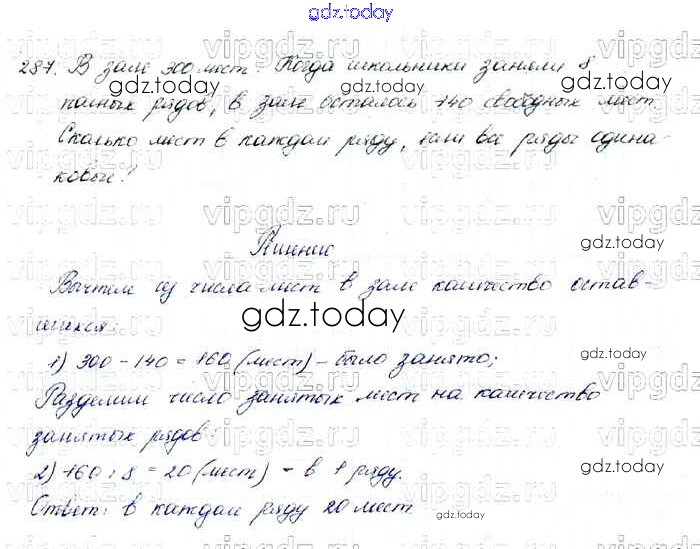 gdz.today
287. В зале 300 мест. Когда школьники заняли 8
полных рядов, в зале осталось 140 свободных мест.
Сколько мест в каждом ряду, если все ряды одина-
ковые?
Решение
gdz.today
Вычтем из числа мест в зале количество остав-
шихся:
gdz.today
1) 300 - 140 = 160 (мест) - было занято;
gdz.today
Разделим число занятых мест на количество
занятых рядов:
2) 160 : 8 = 20 (мест) - в 1 ряду.
gdz.today
Ответ: в каждом ряду 20 мест.
gdz.today
vipgdz.ru